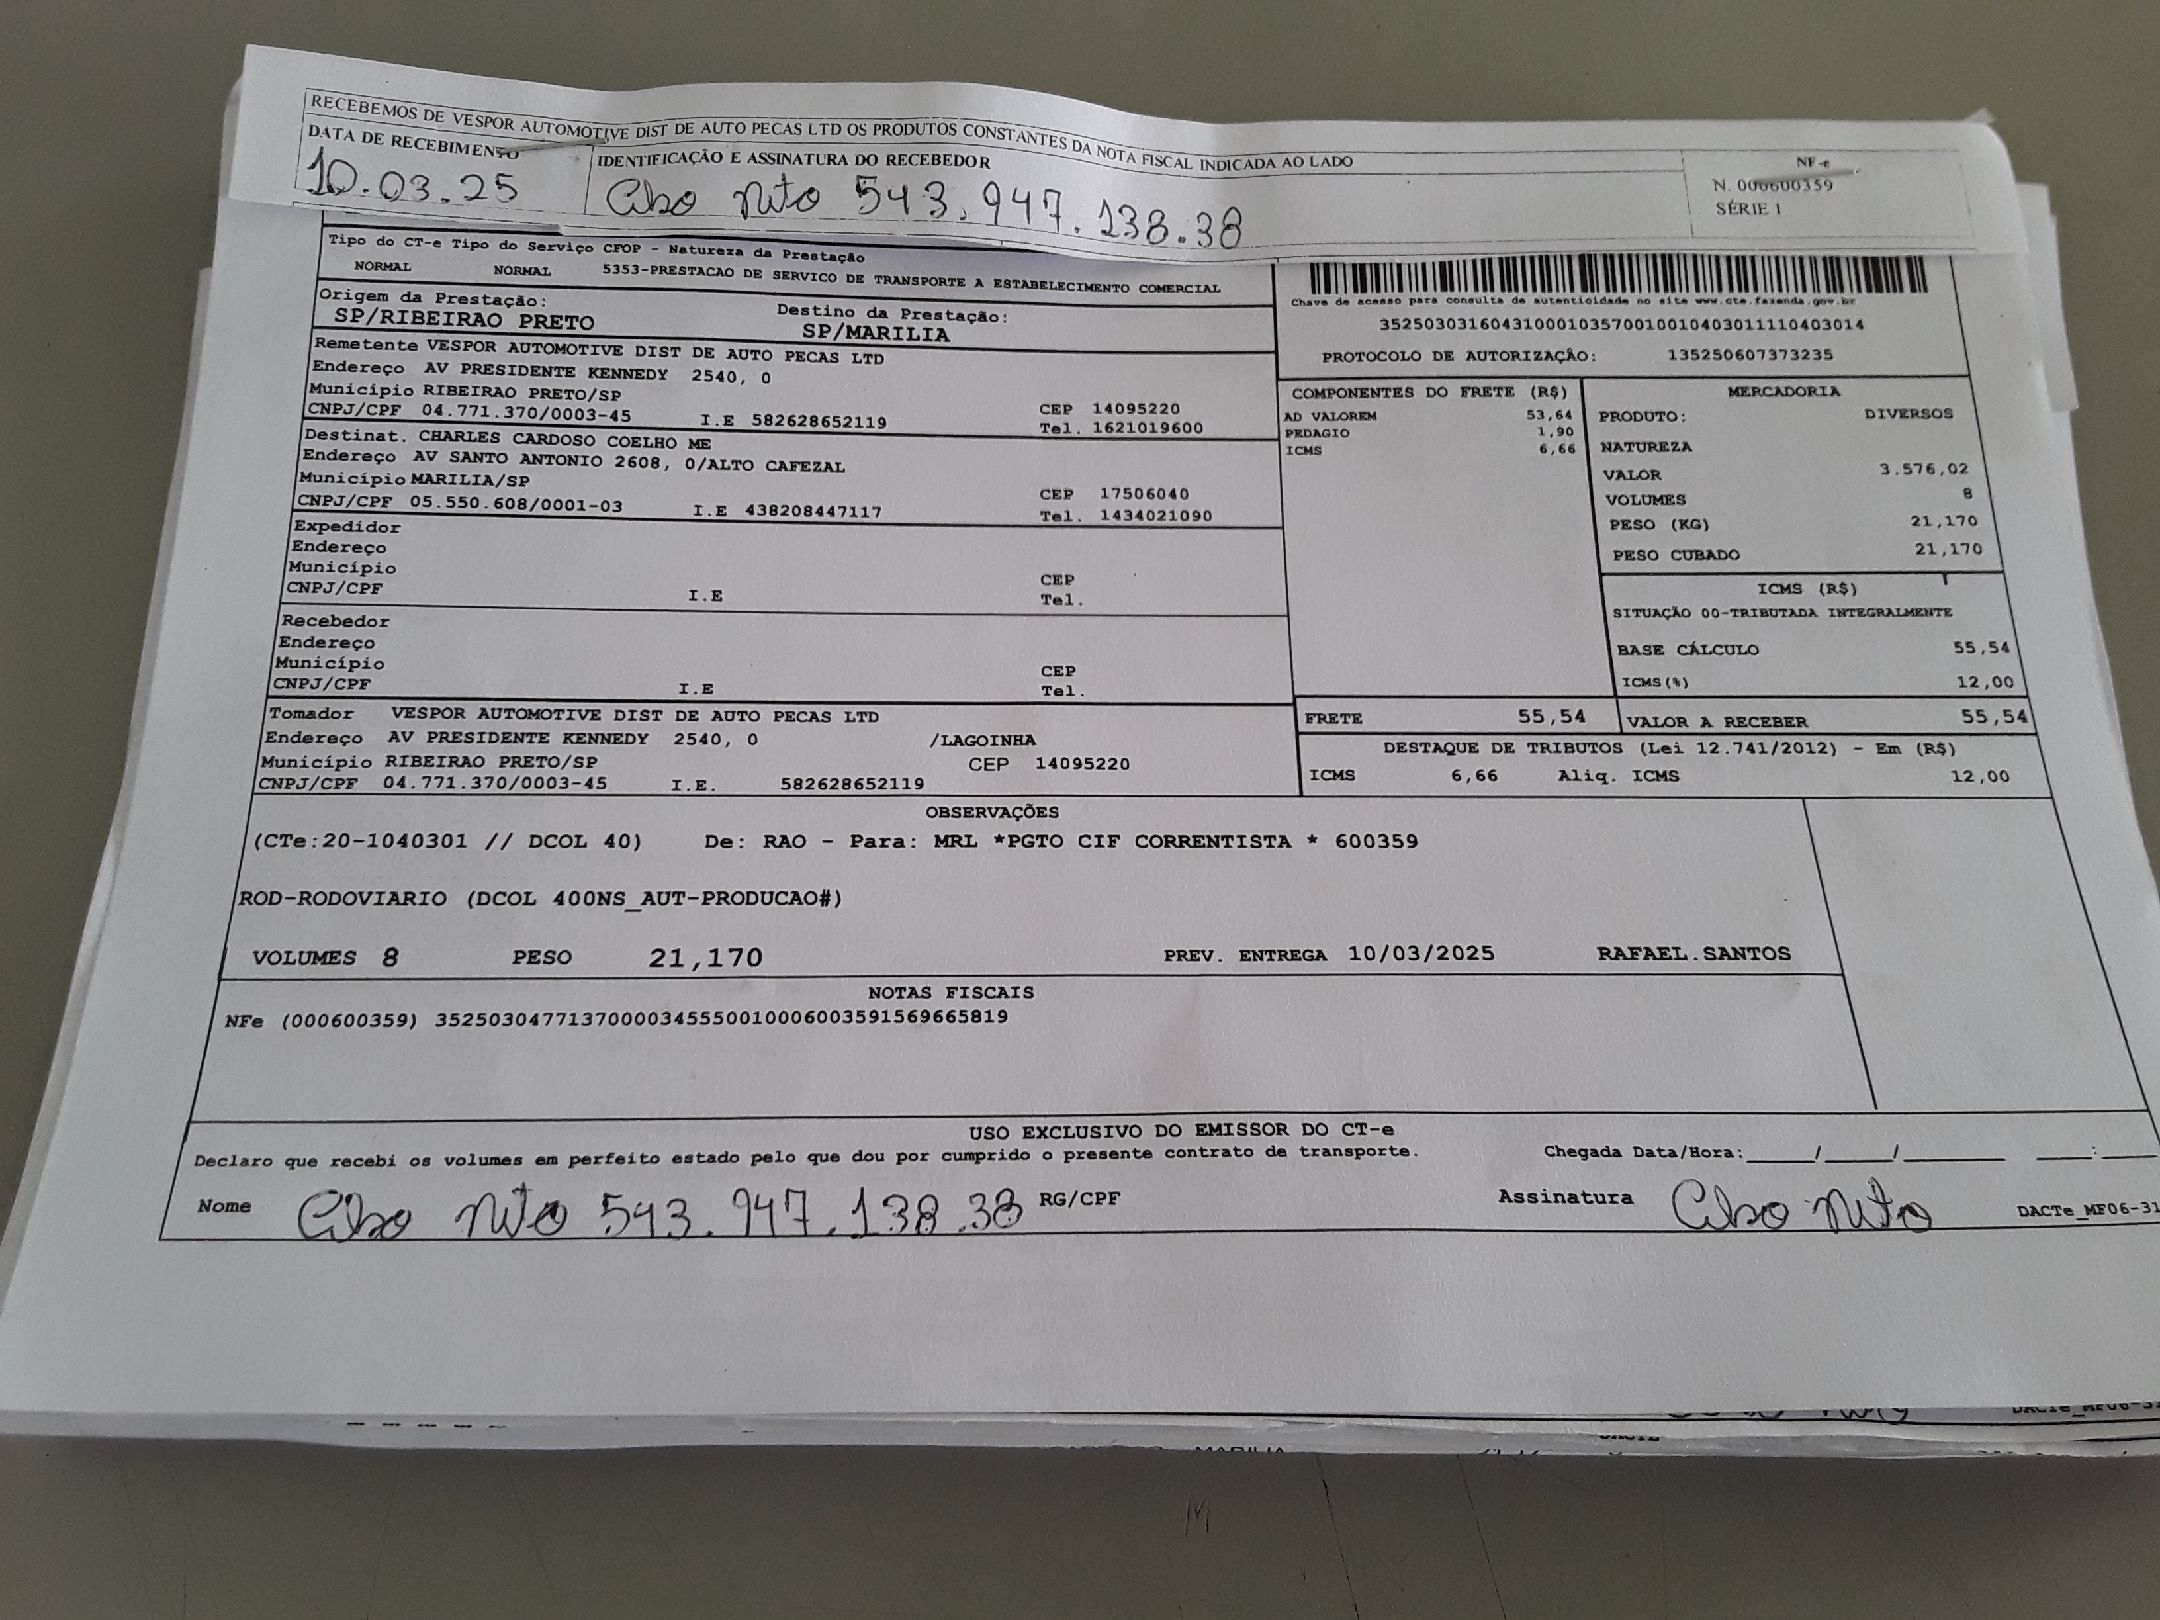 RECEBEMOS DE VESPOR AUTOMOTIVE DIST DE AUTO PECAS LTD OS PRODUTOS CONSTANTES DA NOTA FISCAL INDICADA AO LADO
DATA DE RECEBIMENTO IDENTIFICAÇÃO E ASSINATURA DO RECEBEDOR
10.03.25 543.947.138.38
NF-e
N. 000600359
SÉRIE 1
Tipo do CT-e Tipo do Serviço CFOP - Natureza da Prestação
NORMAL NORMAL 5353-PRESTACAO DE SERVICO DE TRANSPORTE A ESTABELECIMENTO COMERCIAL
Origem da Prestação: Destino da Prestação:
SP/RIBEIRAO PRETO SP/MARILIA
Remetente VESPOR AUTOMOTIVE DIST DE AUTO PECAS LTD
Endereço AV PRESIDENTE KENNEDY 2540, 0
Município RIBEIRAO PRETO/SP CEP 14095220
CNPJ/CPF 04.771.370/0003-45 I.E 582628652119 Tel. 1621019600
Destinat. CHARLES CARDOSO COELHO ME
Endereço AV SANTO ANTONIO 2608, 0/ALTO CAFEZAL
Município MARILIA/SP CEP 17506040
CNPJ/CPF 05.550.608/0001-03 I.E 438208447117 Tel. 1434021090
Expedidor
Endereço
Município CEP
CNPJ/CPF I.E Tel.
Recebedor
Endereço
Município CEP
CNPJ/CPF I.E Tel.
Tomador VESPOR AUTOMOTIVE DIST DE AUTO PECAS LTD
Endereço AV PRESIDENTE KENNEDY 2540, 0 /LAGOINHA
Município RIBEIRAO PRETO/SP CEP 14095220
CNPJ/CPF 04.771.370/0003-45 I.E. 582628652119
Chave de acesso para consulta de autenticidade no site www.cte.fazenda.gov.br
35250303160431000103570010010403011110403014
PROTOCOLO DE AUTORIZAÇÃO: 135250607373235
COMPONENTES DO FRETE (R$)
AD VALOREM 53,64
PEDAGIO 1,90
ICMS 6,66
MERCADORIA
PRODUTO: DIVERSOS
NATUREZA
VALOR 3.576,02
VOLUMES 8
PESO (KG) 21,170
PESO CUBADO 21,170
ICMS (R$)
SITUAÇÃO 00-TRIBUTADA INTEGRALMENTE
BASE CÁLCULO 55,54
ICMS(%) 12,00
FRETE 55,54 VALOR A RECEBER 55,54
DESTAQUE DE TRIBUTOS (Lei 12.741/2012) - Em (R$)
ICMS 6,66 Aliq. ICMS 12,00
OBSERVAÇÕES
(CTe:20-1040301 // DCOL 40) De: RAO - Para: MRL *PGTO CIF CORRENTISTA * 600359
ROD-RODOVIARIO (DCOL 400NS_AUT-PRODUCAO#)
VOLUMES 8 PESO 21,170 PREV. ENTREGA 10/03/2025 RAFAEL.SANTOS
NOTAS FISCAIS
NFe (000600359) 35250304771370000345550010006003591569665819
USO EXCLUSIVO DO EMISSOR DO CT-e
Declaro que recebi os volumes em perfeito estado pelo que dou por cumprido o presente contrato de transporte. Chegada Data/Hora:____/____/______ ____:____
Nome 543.947.138.38 RG/CPF Assinatura DACTe_MF06-31